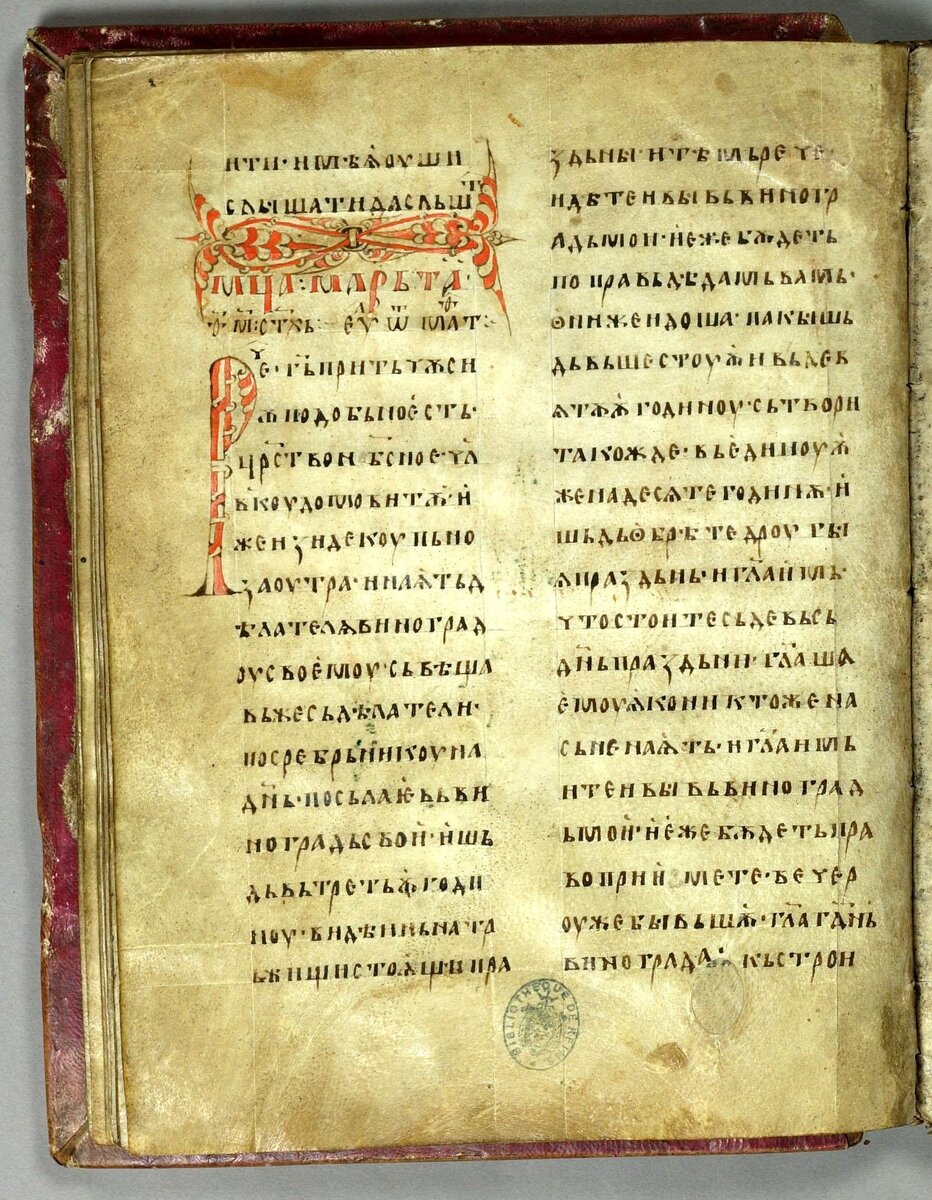 ити·имѣѧ оуши
слꙑшати да слꙑшⷮ
мц҃а: марьта·
м҃ стх҃ъ: еуⷢ҇ ѿ маⷮ·
Рече· г҃ь притъчѫ си
ѭ подобьно есть·
црⷭ҇тво н҃бсное· чл҃
вкоу домовитѫ· и
же изиде коупьно
за оутра· ниꙗтъ д
ѣлателѧ виноград
оу своемоу· съвѣща
въже съ дѣлатели·
по сребрьникоу на
дн҃ь· посъла ѩ въ ви
ноградъ свои· и шь
дъ въ третьѭ годи
ноу· видѣ инꙑ на тр
ьжищи стоѧщѧ пра
здьнꙑ· и тѣмъ рече·
идѣте и вꙑ въ виногр
адъ мои· и еже бѫдеть
по правьдѣ дамь вамь·
Ѳни же идоша· пакꙑ шь
дъ въ шестоуѭ и въ дев
ѧтѫѭ годиноу· сътвори
такожде· въ единоуѭ
же на десѧте годинѫ· и
шьдъ ѳбрѣте дроугꙑ
ѧ праздьнь· и гл҃а имъ·
что стоите сьде вьсь
дн҃ь праздьни· гл҃аша
емоу ꙗко никтоже на
съ не наѩть· и гл҃а имъ
ите и вꙑ въ виноград
ъ мои· и еже бѫдеть пра
во приимете· вечер
оу же бꙑвъшѫ· гл҃а г҃днь
винограда· къ строи
BIBLIOTHÈQUE DE REIMS